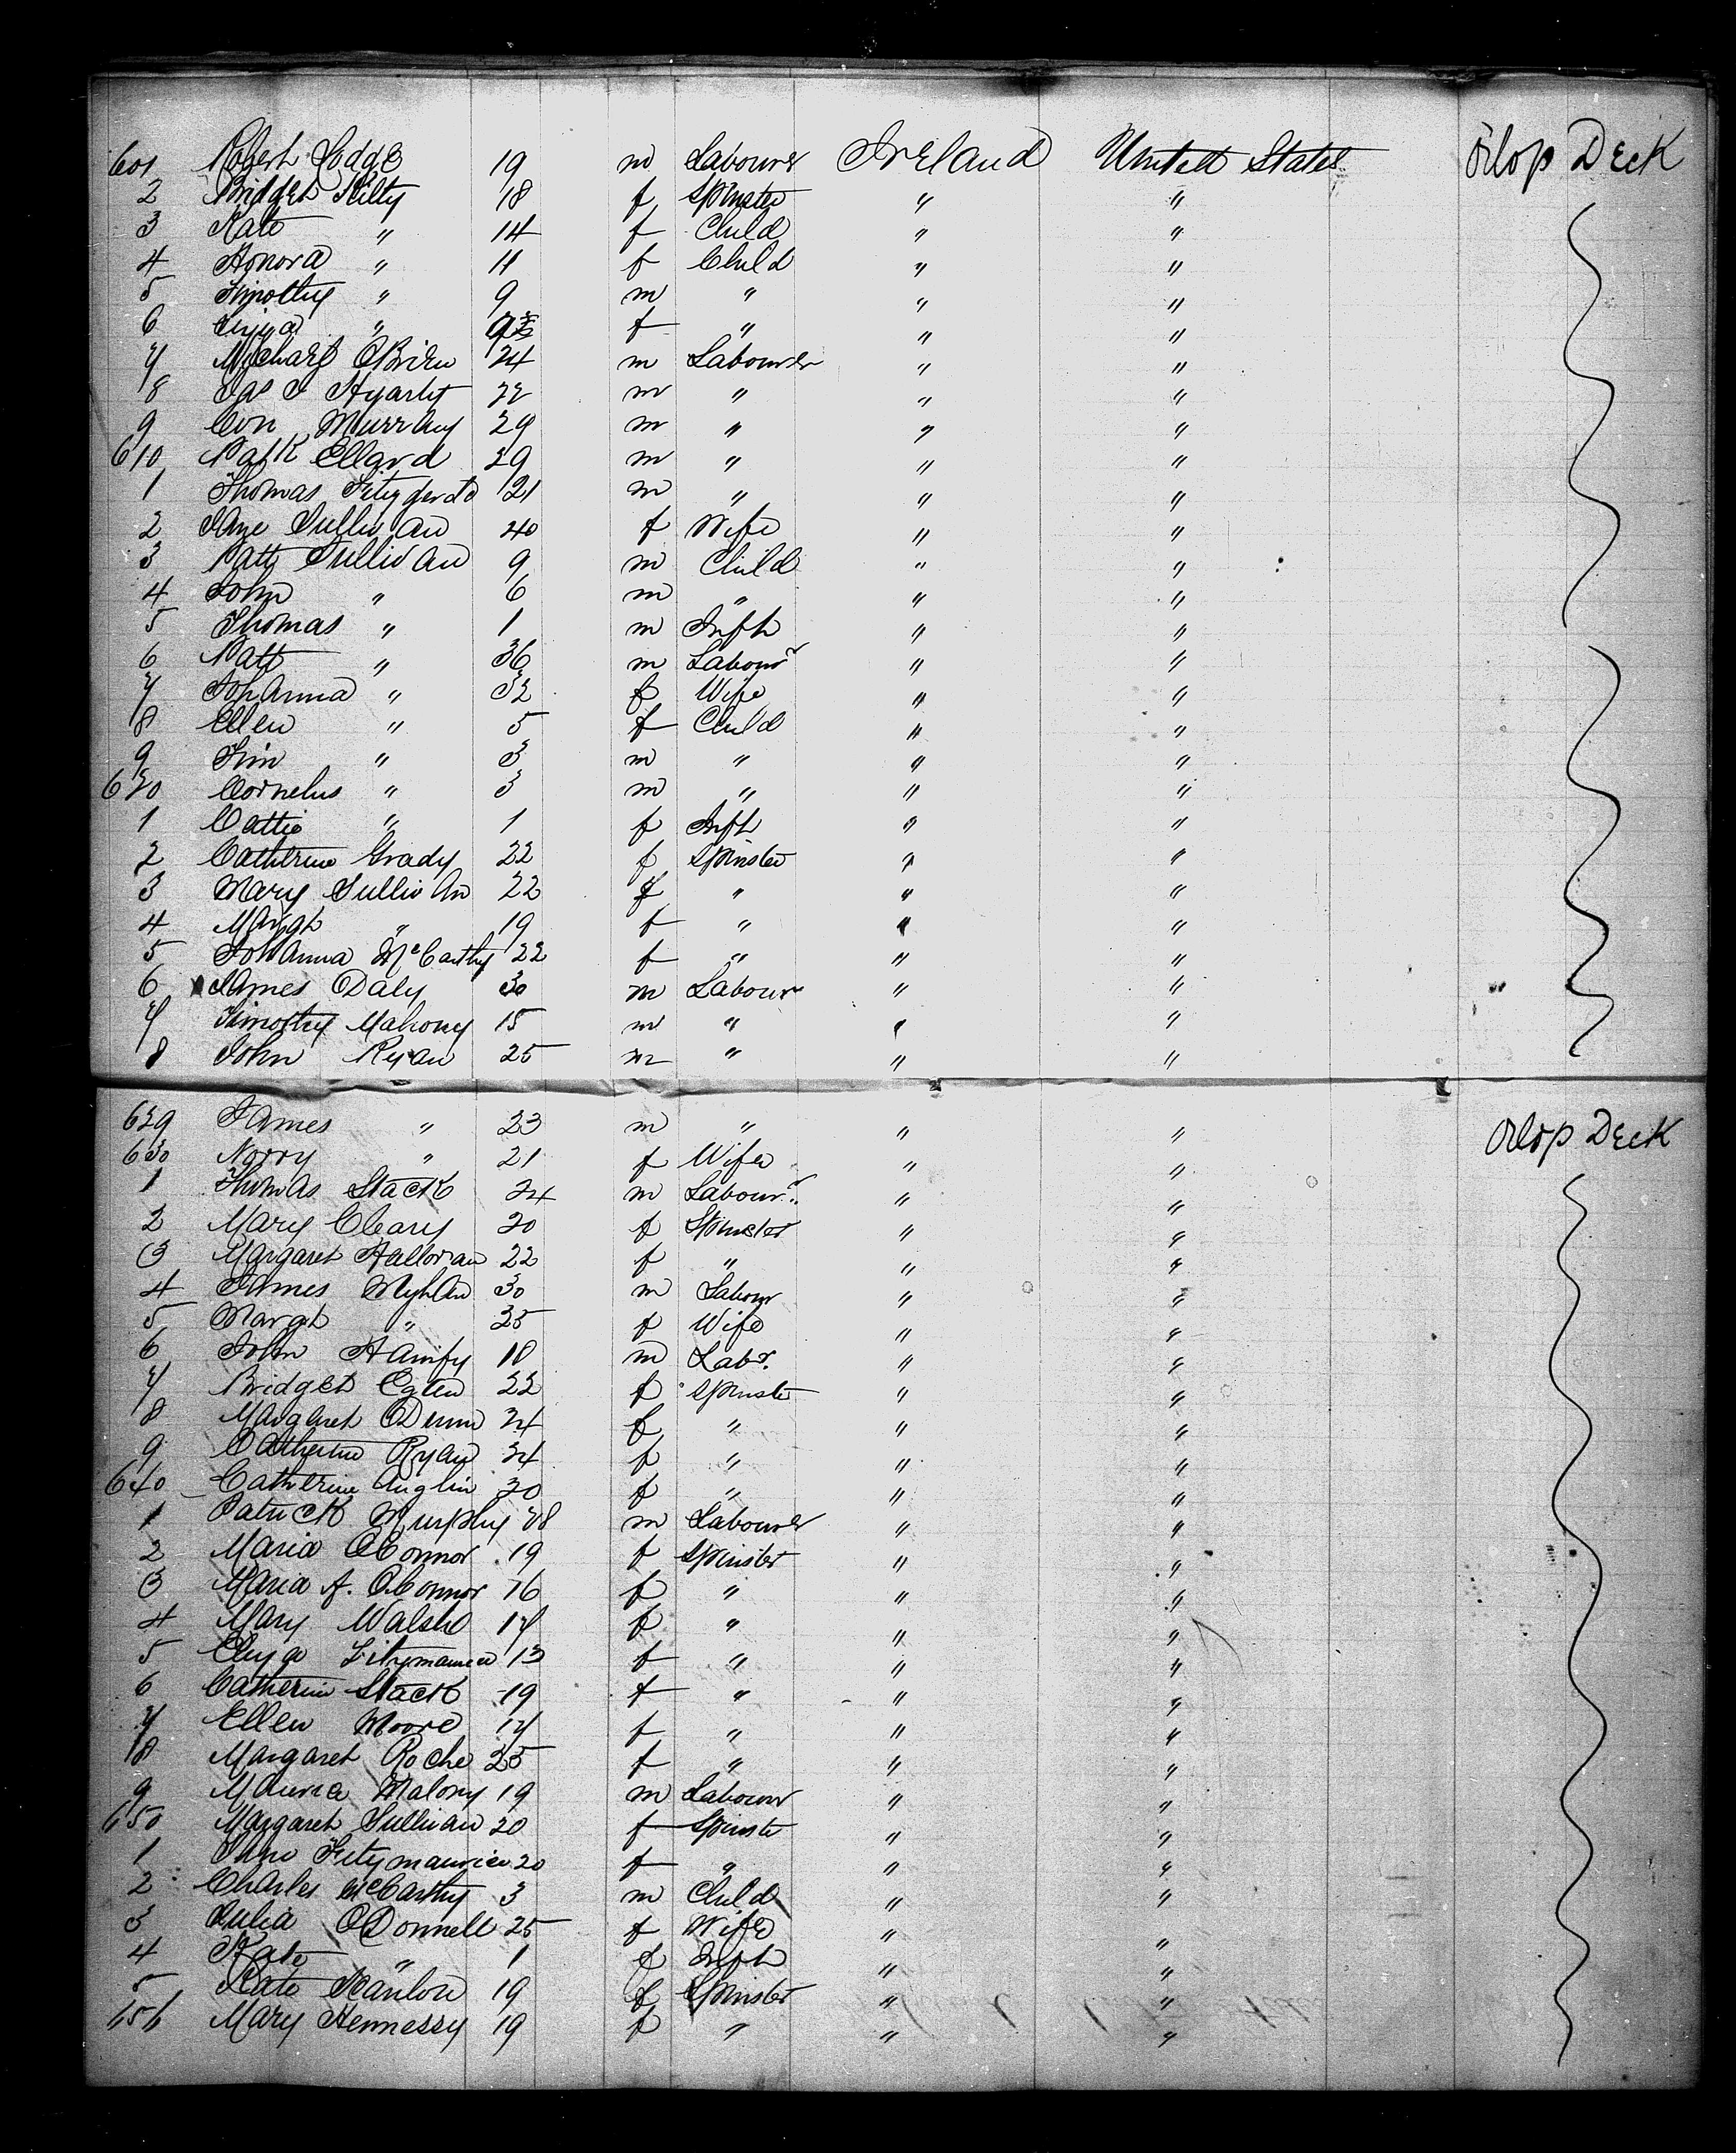 601 Robert Lodge 19 m Labourer Ireland United States Orlop Deck
2 Bridget Kilty 18 f Spinster " "
3 Kate " 14 f Child " "
4 Honora " 11 f Child " "
5 Timothy " 9 m " " "
6 " f " " "
7 Michael OBrien 24 m Labourer " "
8 Jas 22 m " " "
9 Con Murray 29 m " " "
610 Patk Ellard 29 m " " "
1 Thomas Fitzgerald 21 m " " "
2 Jane Sullivan 40 f Wife " "
3 Patt Sullivan 9 m Child " "
4 John " 6 m " " "
5 Thomas " 1 m Inft " "
6 Patt " 36 m Labour " "
7 Johanna " 32 f Wife " "
8 Ellen " 5 f Child " "
9 Tim " 3 m " " "
620 Cornelus " 3 m " " "
1 Cattie " 1 f Inft " "
2 Catherine Grady 22 f Spinster " "
3 Mary Sullivan 22 f " " "
4 Margt " 19 f " " "
5 Johanna McCarthy 22 f " " "
6 James Daly 30 m Labour " "
7 Timothy Mahony 15 m " " "
8 John Ryan 25 m " " "
629 James " 23 m " " " Orlop Deck
630 Norry " 21 f Wife " "
1 Thomas Stack 24 m Labour " "
2 Mary Cleary 20 f Spinster " "
3 Margaret Halloran 22 f " " "
4 James 30 m Labour " "
5 Margt " 25 f Wife " "
6 John 18 m Labr. " "
7 Bridget Egten 22 f Spinster " "
8 Margaret 24 f " " "
9 Catherine Ryan 24 f " " "
640 Catherine Anglin 20 f " " "
1 Patrick Murphy 28 m Labourer " "
2 Maria OConnor 19 f Spinster " "
3 Maria A. OConnor 16 f " " "
4 Mary Walsh 17 f " " "
5 Eliza Fitzmaurice 13 f " " "
6 Catherine Stack 19 f " " "
7 Ellen Moore 17 f " " "
8 Margaret Roche 25 f " " "
9 Maurice Malony 19 m Labour " "
650 Margaret Sullivan 20 f Spinster " "
1 Jane Fitzmaurice 20 f " " "
2 Charles McCarthy 3 m Child " "
3 Julia ODonnell 25 f Wife " "
4 Kate " 1 f Inft " "
5 Kate Hanlon 19 f Spinster " "
656 Mary Hennessy 19 f " " "